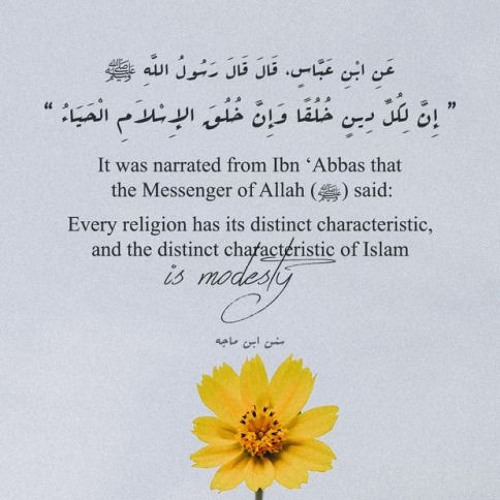 عَنِ ابْنِ عَبَّاسٍ، قَالَ قَالَ رَسُولُ اللَّهِ ﷺ
” إِنَّ لِكُلِّ دِينٍ خُلُقًا وَإِنَّ خُلُقَ الإِسْلاَمِ الْحَيَاءُ “
It was narrated from Ibn ‘Abbas that
the Messenger of Allah (ﷺ) said:
Every religion has its distinct characteristic,
and the distinct characteristic of Islam
is modesty
سنن ابن ماجه